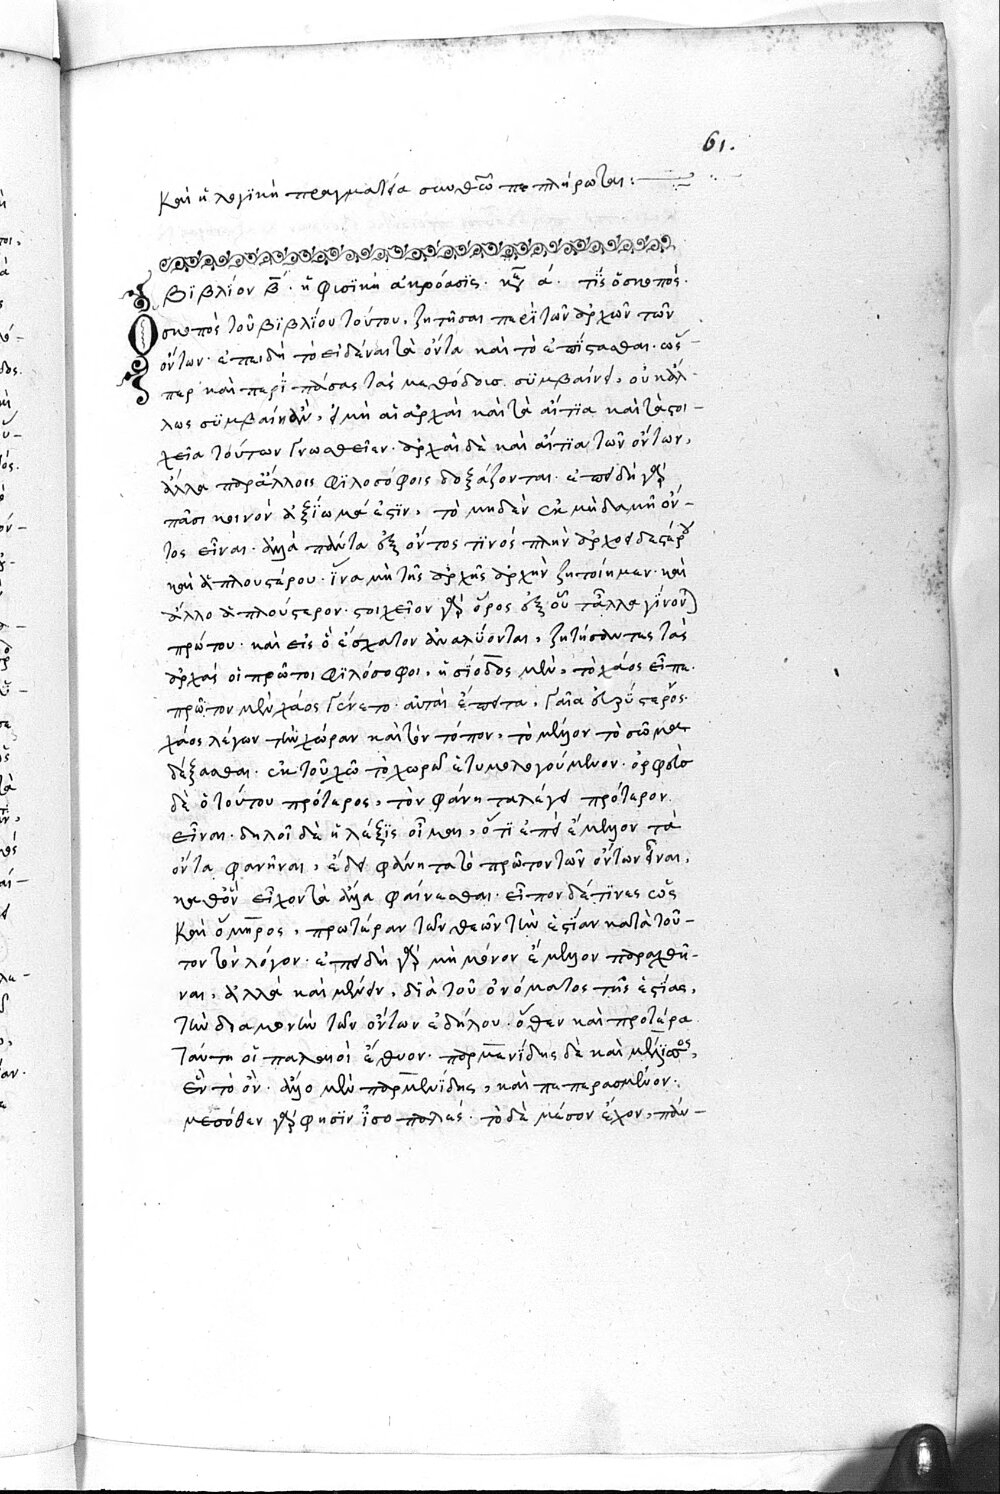 61.
Καὶ ἡ λογικὴ πραγματεία σὺν θεῶ πεπλήρωται:
βϊβλϊον β̅. ἡ φϋσϊκὴ ἀκρόασϊς. κεφ ά. τίς ὁ σκοπός.
Ὁ σκοπὸς τοῦ βϊβλίου τούτου, ζητῆσαι περὶ τῶν ἀρχῶν τῶν
ὄντων. ἐπειδὴ τὸ εἰδέναι τὰ ὄντα καὶ τὸ ἐπίστασθαι. ὥσ-
περ καὶ περὶ πάσας τὰς μεθόδους συμβαίνει, οὐκ ἄλ-
λως συμβαίνει, εἰ μὴ αἱ ἀρχαὶ καὶ τὰ αἴτϊα καὶ τὰ στοι-
χεῖα τούτων γνωσθεῖεν. ἀρχαὶ δὲ καὶ αἴτϊα τῶν ὄντων,
ἄλλα παρ' ἄλλοις φϊλοσόφοις δοξάζονται. ἐπειδὴ γὰρ
πᾶσι κοινὸν ἀξίωμά ἐστϊν, τὸ μηδὲν ἐκ μηδαμῆ ὄν-
τος εἶναι. ἀλλὰ πάντα ἐξ ὄντος τϊνός πλὴν ἀρχοειδεστέρου
καὶ ἁπλουστέρου. ἵνα μὴ τῆς ἀρχῆς ἀρχὴν ζητοίημεν. καὶ
ἄλλο ἁπλούστερον. στοιχεῖον γὰρ ὅρος ἐξ οὗ τἄλλα γίνονται
πρώτου. καὶ εἰς ὃ ἔσχατον ἀναλύονται, ζητήσαντες τὰς
ἀρχὰς οἱ πρῶτοι φϊλόσοφοι, ἡσίοδος μὲν, τὸ χάος εἶπε.
πρῶτον μὲν χάος γένετο. αὐτὰρ ἔπειτα, γαῖα εὐρύστερνος.
χάος λέγων τὴν χώραν καὶ τὸν τόπον, τὸ μέλλον τὸ σῶμα
δέξασθαι. ἐκ τοῦ χῶ τὸ χωρῶ ἐτυμολογούμενον. ὀρφεὺς
δὲ ὁ τούτου πρότερος, τὸν φάνητα λέγει πρότερον
εἶναι. δηλοῖ δὲ ἡ λέξϊς οἶμαι, ὅτϊ ἐπεὶ ἔμελλον τὰ
ὄντα φανῆναι, ἔδει φάνητα τὸ πρῶτον τῶν ὄντων εἶναι,
καθ' ὃν εἶχον τὰ ἄλλα φαίνεσθαι. εἶπον δέ τϊνες ὡς
Καὶ ὅμηρος, προτέραν τῶν θεῶν τὴν ἑστίαν κατὰ τοῦ-
τον τὸν λόγον. ἐπειδὴ γὰρ μὴ μόνον ἔμελλον παραχθῆ-
ναι, ἀλλὰ καὶ μένειν, δϊὰ τοῦ ὀνόματος τῆς ἑστίας,
τὴν διαμονὴν τῶν ὄντων ἐδήλου. ὅθεν καὶ προτέρα
Ταύτη οἱ παλαιοὶ ἔθυον. παρμενίδης δὲ καὶ μέλισσος,
ἓν τὸ ὄν. ἀλλ' ὁ μὲν παρμενίδης, καὶ πεπερασμένον.
μεσόθεν γὰρ φησϊν ἰσοπαλές. τὸ δὲ μέσον ἔχον, πάν-